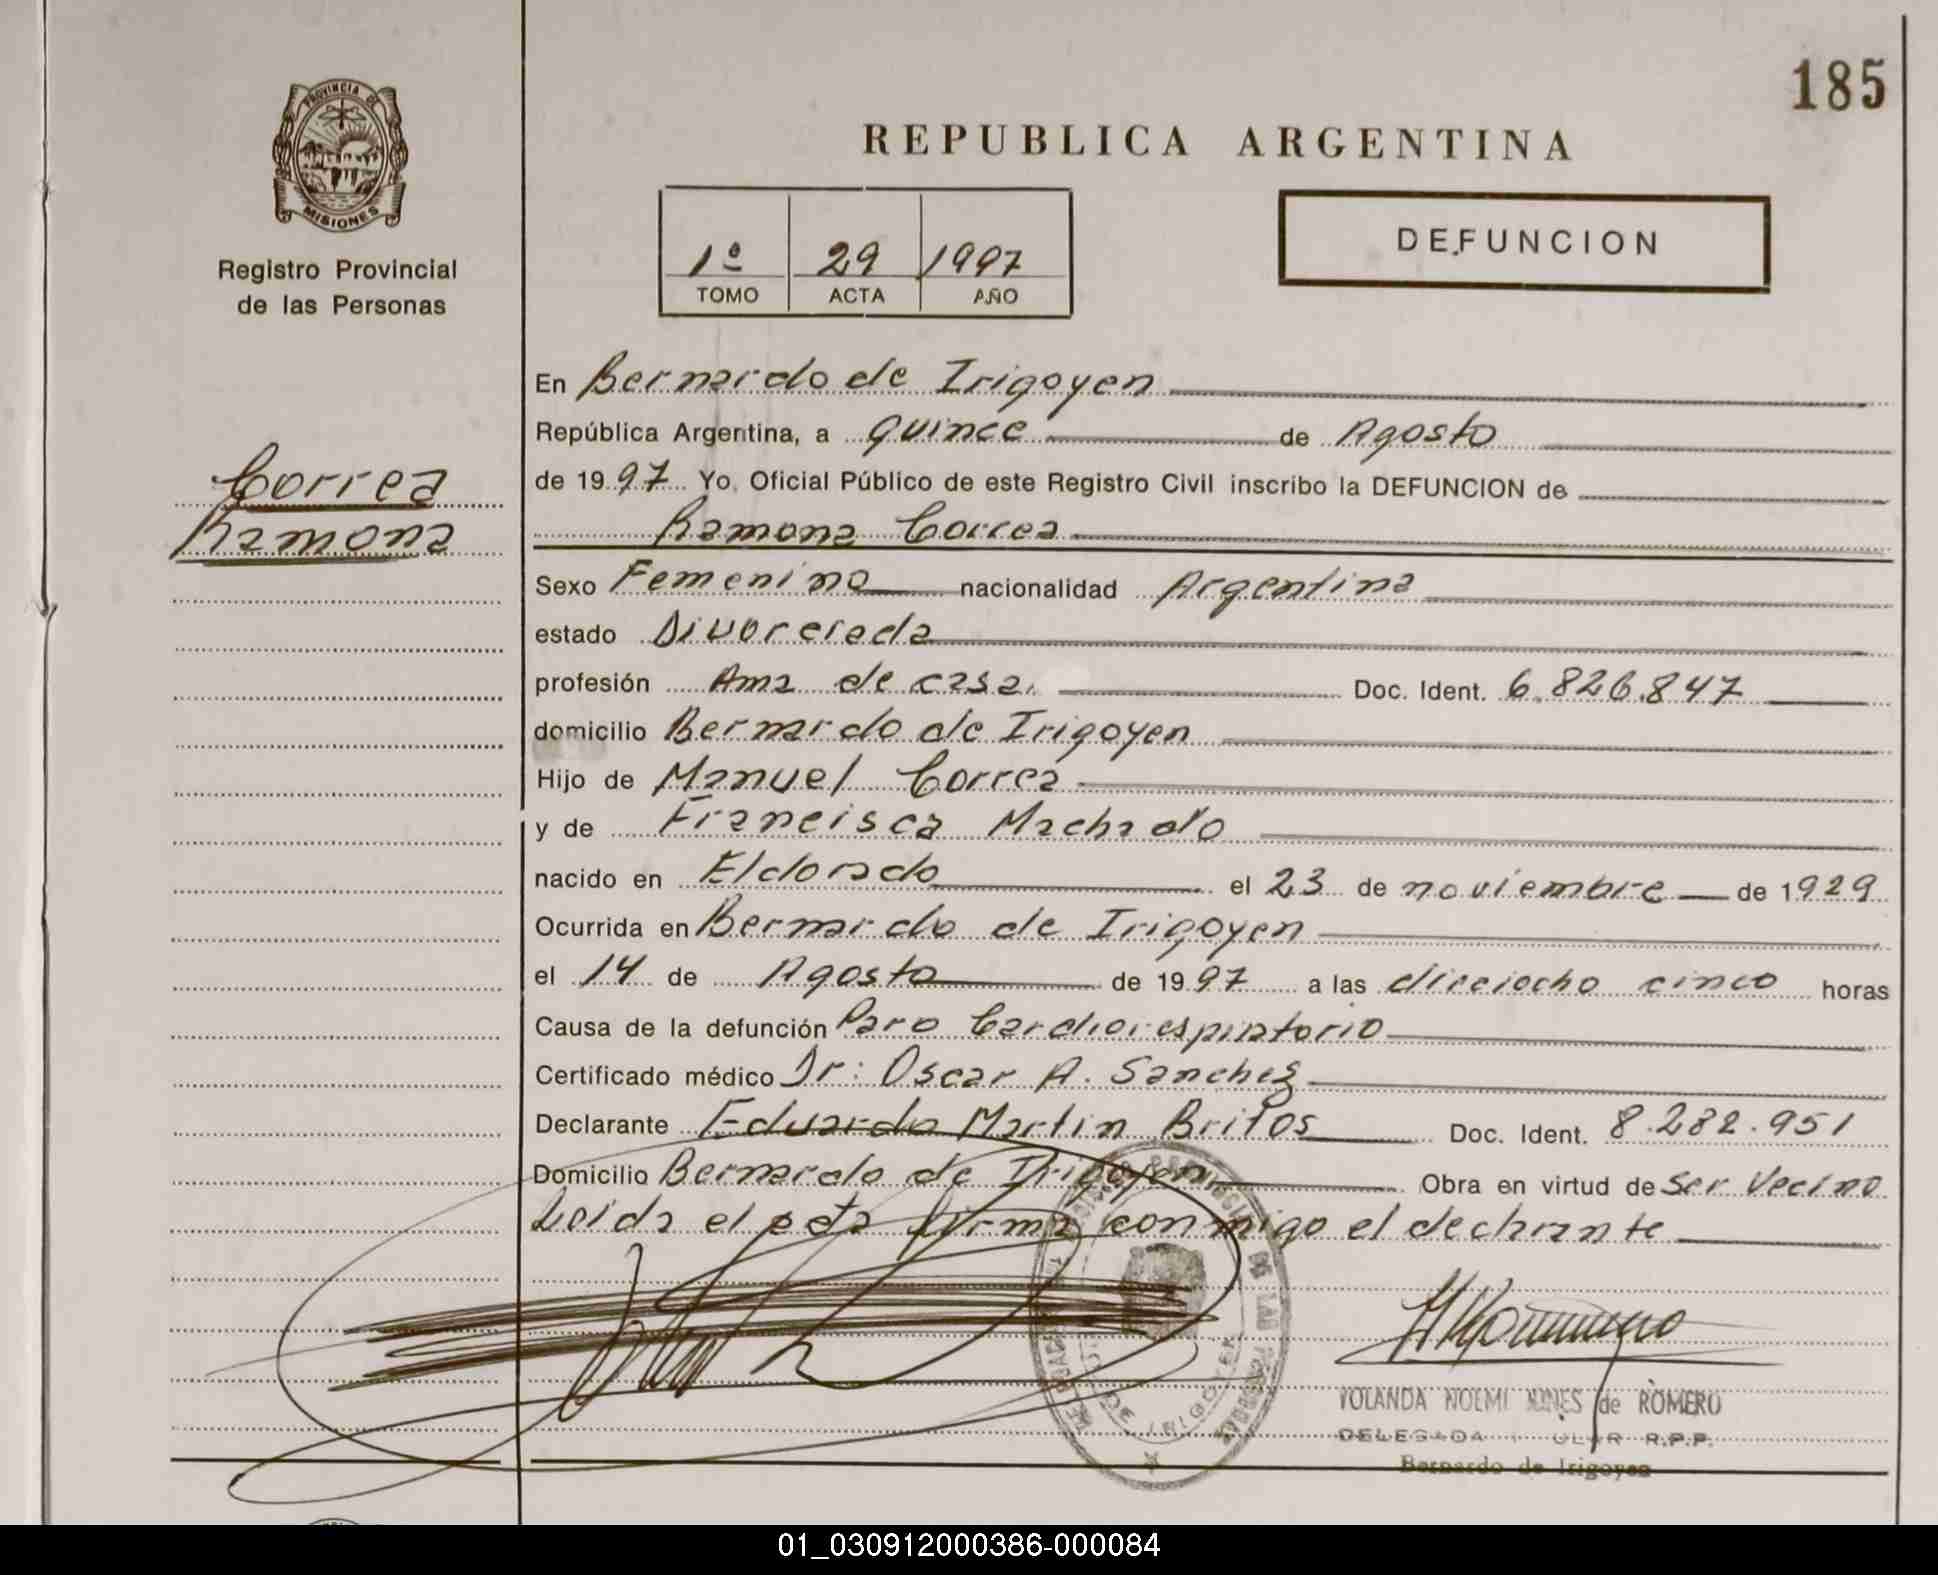 185
PROVINCIA DE
MISIONES
Registro Provincial
de las Personas
REPUBLICA ARGENTINA
1º 29 1997
TOMO ACTA AÑO
DEFUNCION
Correa
Ramona
En Bernardo de Irigoyen
República Argentina, a quince de Agosto
de 1997 Yo, Oficial Público de este Registro Civil inscribo la DEFUNCION de
Ramona Correa
Sexo Femenino nacionalidad Argentina
estado Divorciada
profesión Ama de casa. Doc. Ident. 6.826.847
domicilio Bernardo de Irigoyen
Hijo de Manuel Correa
y de Francisca Machado
nacido en Eldorado el 23 de noviembre de 1929
Ocurrida en Bernardo de Irigoyen
el 14 de Agosto de 1997 a las dieciocho cinco horas
Causa de la defunción Paro Cardiorespiratorio
Certificado médico Dr: Oscar A. Sanchez
Declarante Eduardo Martin Britos Doc. Ident. 8.232.951
Domicilio Bernardo de Irigoyen Obra en virtud de ser vecino
Leida el acta firma conmigo el declarante
DE IRIGOYEN
YOLANDA NOEMI de ROMERO
DELEGADA R.P.P.
Bernardo de Irigoyen
01_030912000386-000084